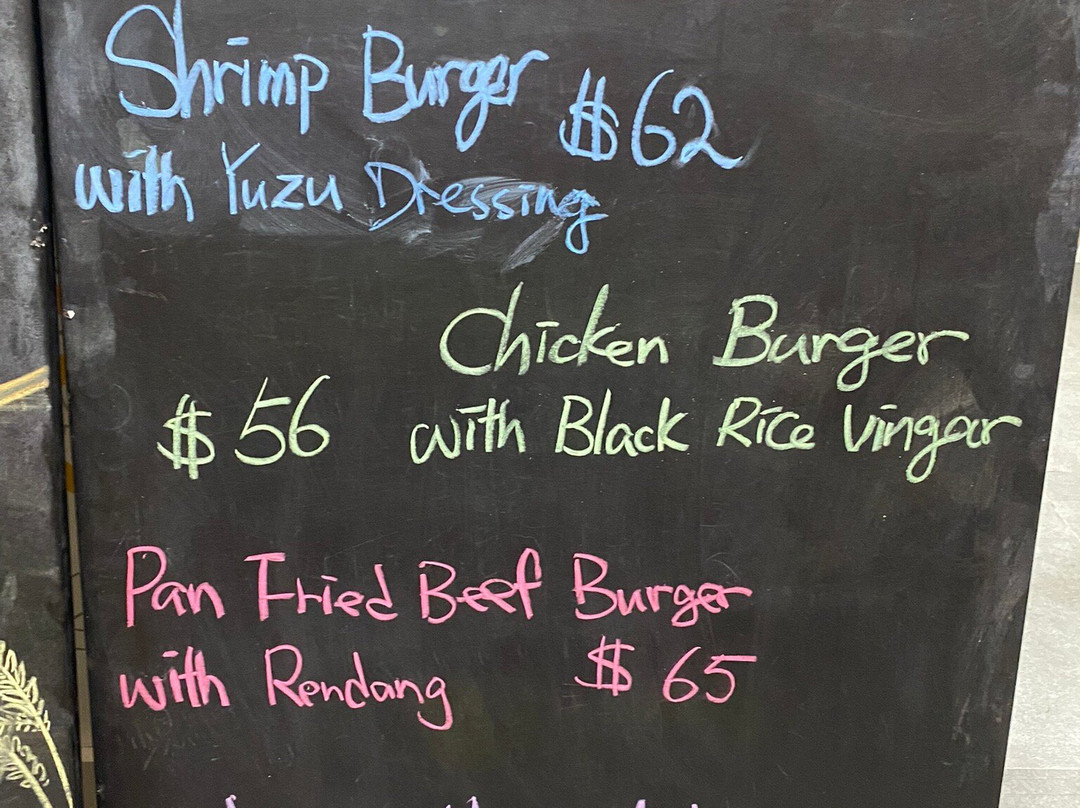 Shrimp Burger $62
with Yuzu Dressing
Chicken Burger
$56 with Black Rice Vingar
Pan Fried Beef Burger
with Rendang $65